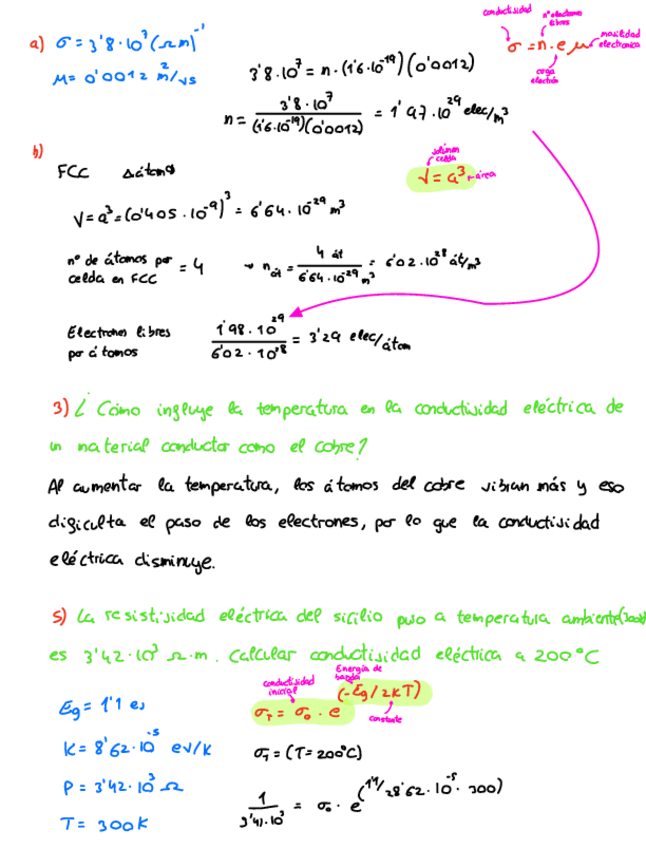 conductividad
nº electrones libres
a) σ = 3'8·10⁷ (Ω m)⁻¹
σ = n·e μ
movilidad electronica
carga electrón
μ = 0'0012 m²/vs
3'8·10⁷ = n·(1'6·10⁻¹⁹)(0'0012)
n = 3'8·10⁷ / (1'6·10⁻¹⁹)(0'0012) = 1'97·10²⁹ elec/m³
b)
FCC
volumen celda
V = a³
V = a³ = (0'405·10⁻⁹)³ = 6'64·10⁻²⁹ m³
nº de átomos por celda en FCC = 4
n át = 4 át / 6'64·10⁻²⁹ m³ = 6'02·10²⁸ át/m³
Electrones libres por átomos
1'98·10²⁹ / 6'02·10²⁸ = 3'29 elec/átom
3) ¿Cómo ingluye la temperatura en la conductividad eléctrica de
un material conductor como el cobre?
Al aumentar la temperatura, los átomos del cobre vibran más y eso
digiculta el paso de los electrones, por lo que la conductividad
eléctrica disminuye.
5) La resistividad eléctrica del silicio puro a temperatura ambiente(300k)
es 3'42·10³ Ω·m. Calcular conductividad eléctrica a 200°C
conductividad inicial
Energía de banda
Eg = 1'1 ev
σT = σ₀ · e (-Eg/2kT)
constante
K = 8'62·10⁻⁵ ev/K
σT = (T=200°C)
P = 3'42·10³ Ω
1 / 3'42·10³ = σ₀ · e (1'1/2 8'62·10⁻⁵·300)
T = 300K